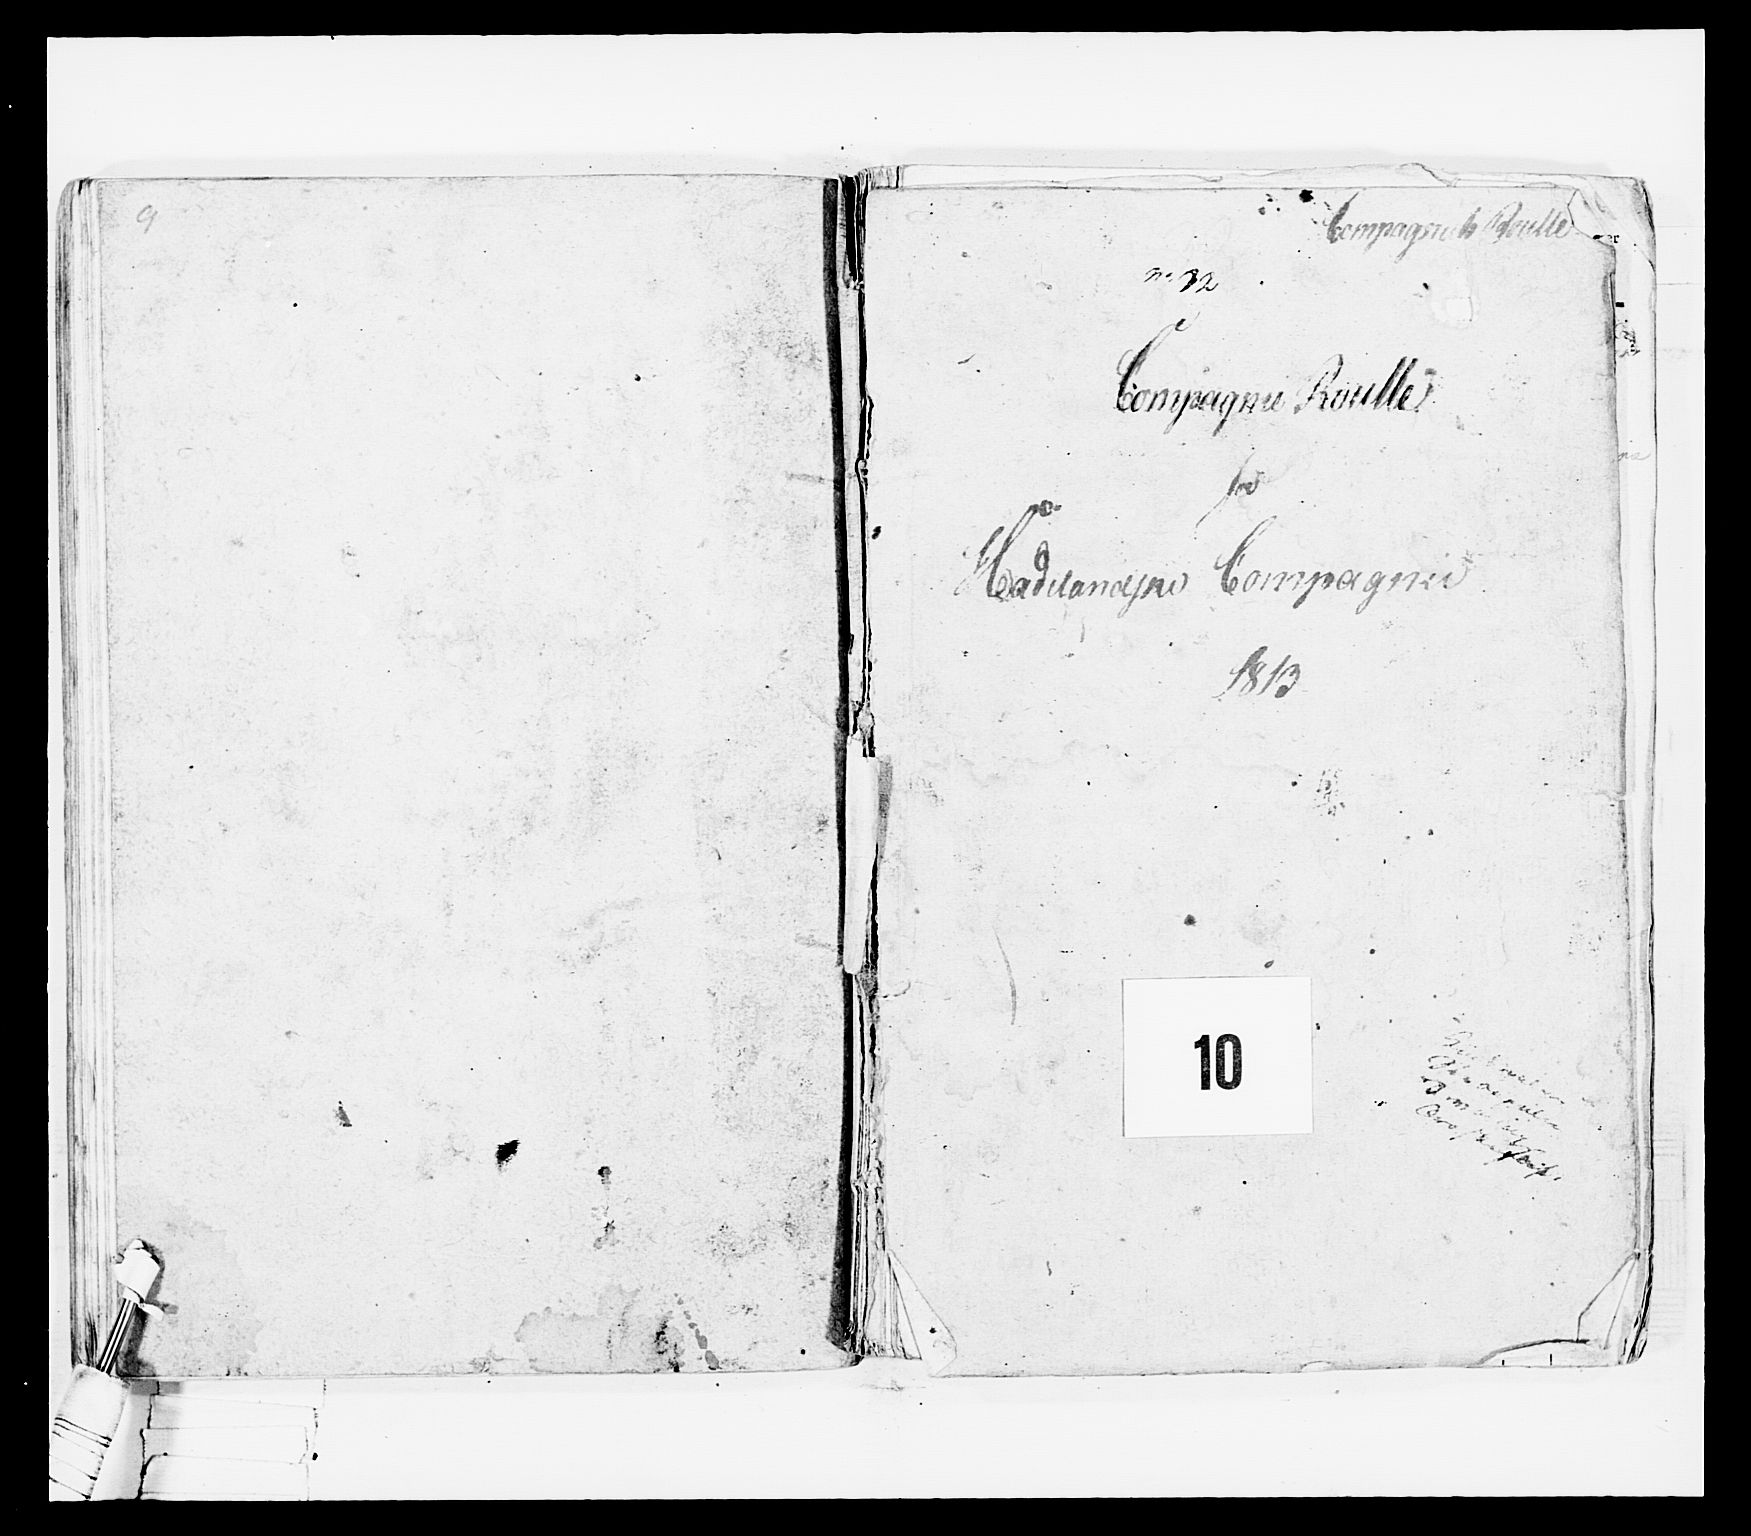 9
Compagnie Roulle
no 32
Compagnie Roulle
for
Hadelandske Compagnie
1813
10